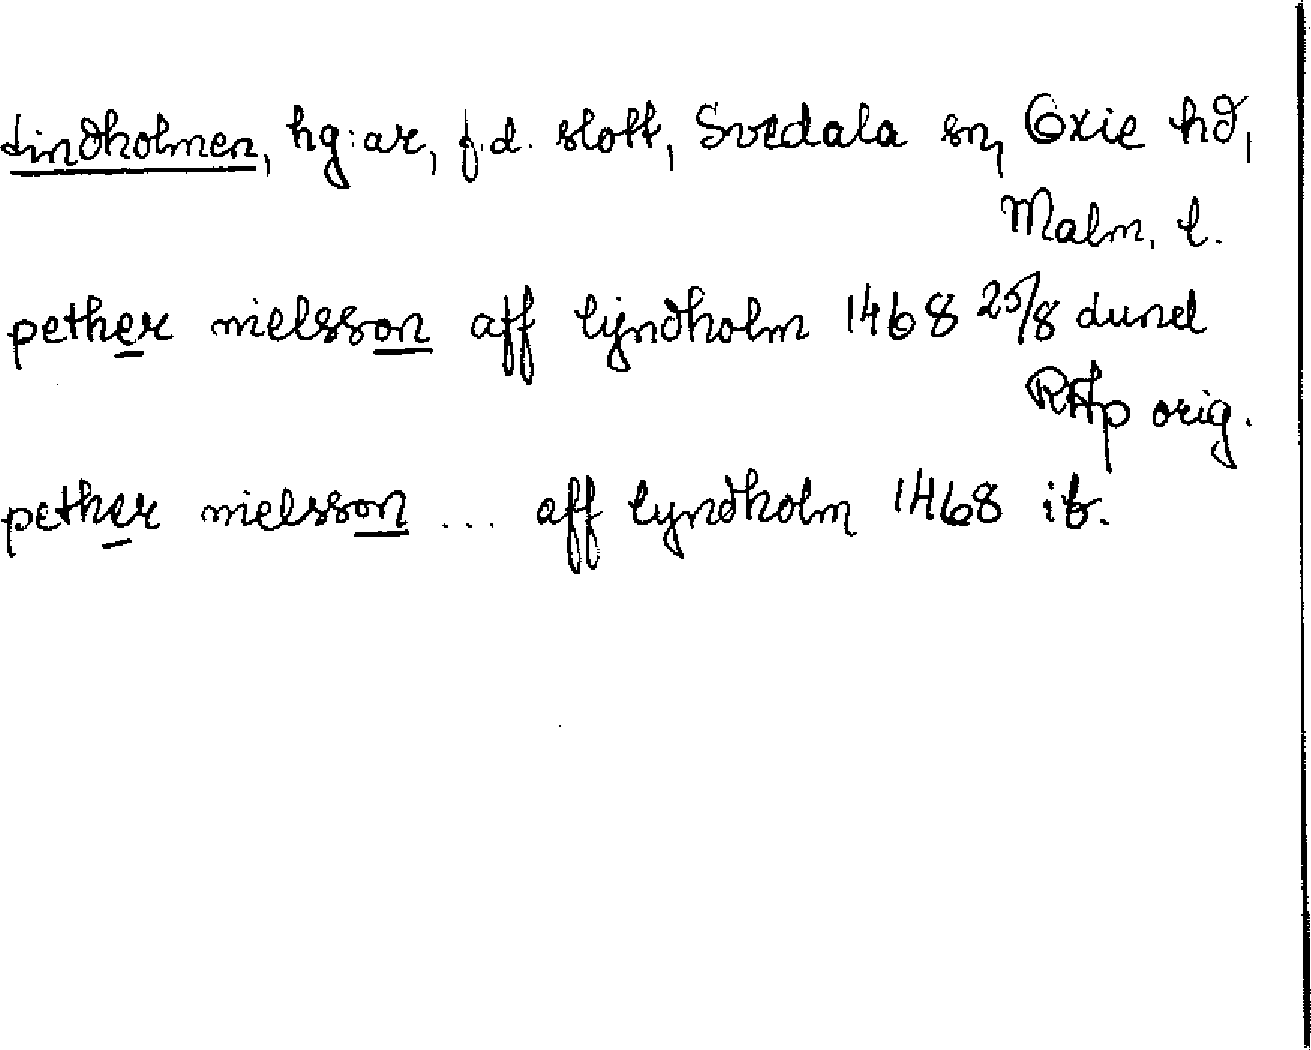 Lindholmen, hg:ar, f.d. slott, Svedala sn, Oxie hd,
Malm. l.
pether nielsson aff lyndholm 1468 25/8 dunel
RAp orig.
pether nielsson ... aff lyndholm 1468 ib.